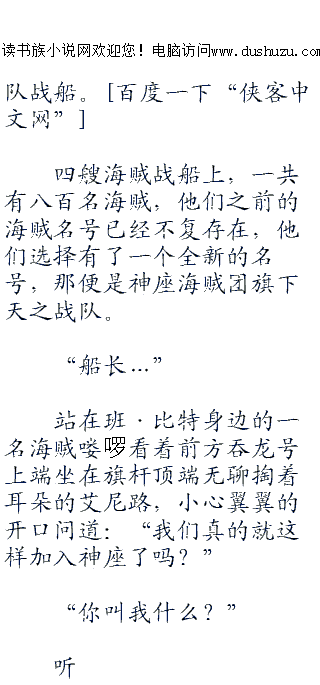 读书族小说网欢迎您！电脑访问www.dushuzu.com
队战船。[百度一下“侠客中
文网”]
四艘海贼战船上，一共
有八百名海贼，他们之前的
海贼名号已经不复存在，他
们选择有了一个全新的名
号，那便是神座海贼团旗下
天之战队。
“船长…”
站在班·比特身边的一
名海贼喽啰看着前方吞龙号
上端坐在旗杆顶端无聊掏着
耳朵的艾尼路，小心翼翼的
开口问道：“我们真的就这
样加入神座了吗？”
“你叫我什么？”
听